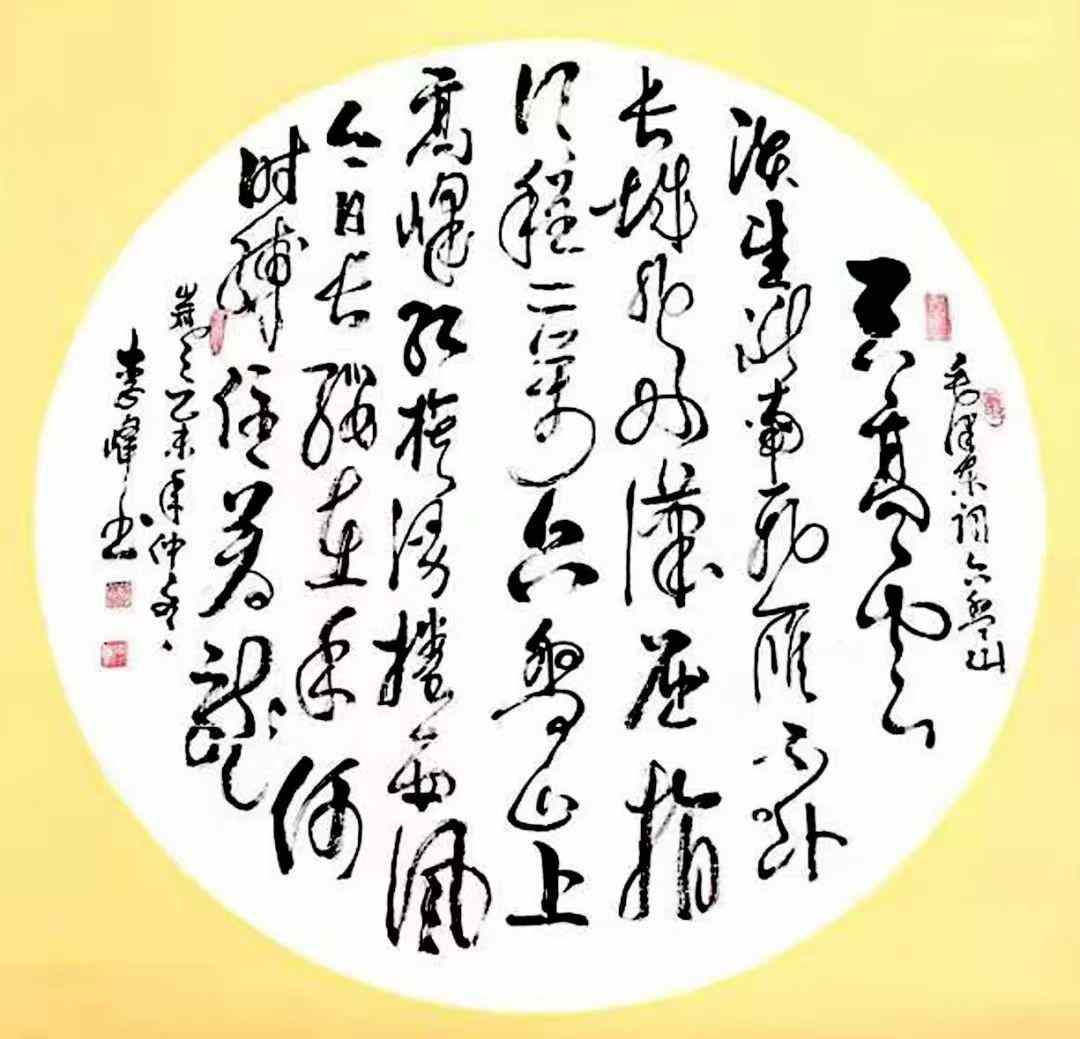 毛泽东词六盘山
天高云
淡望断南飞雁不到
长城非好汉屈指
行程二万六盘山上
高峰红旗漫卷西风
今日长缨在手何
时缚住苍龙
岁乙未年仲
李峰书